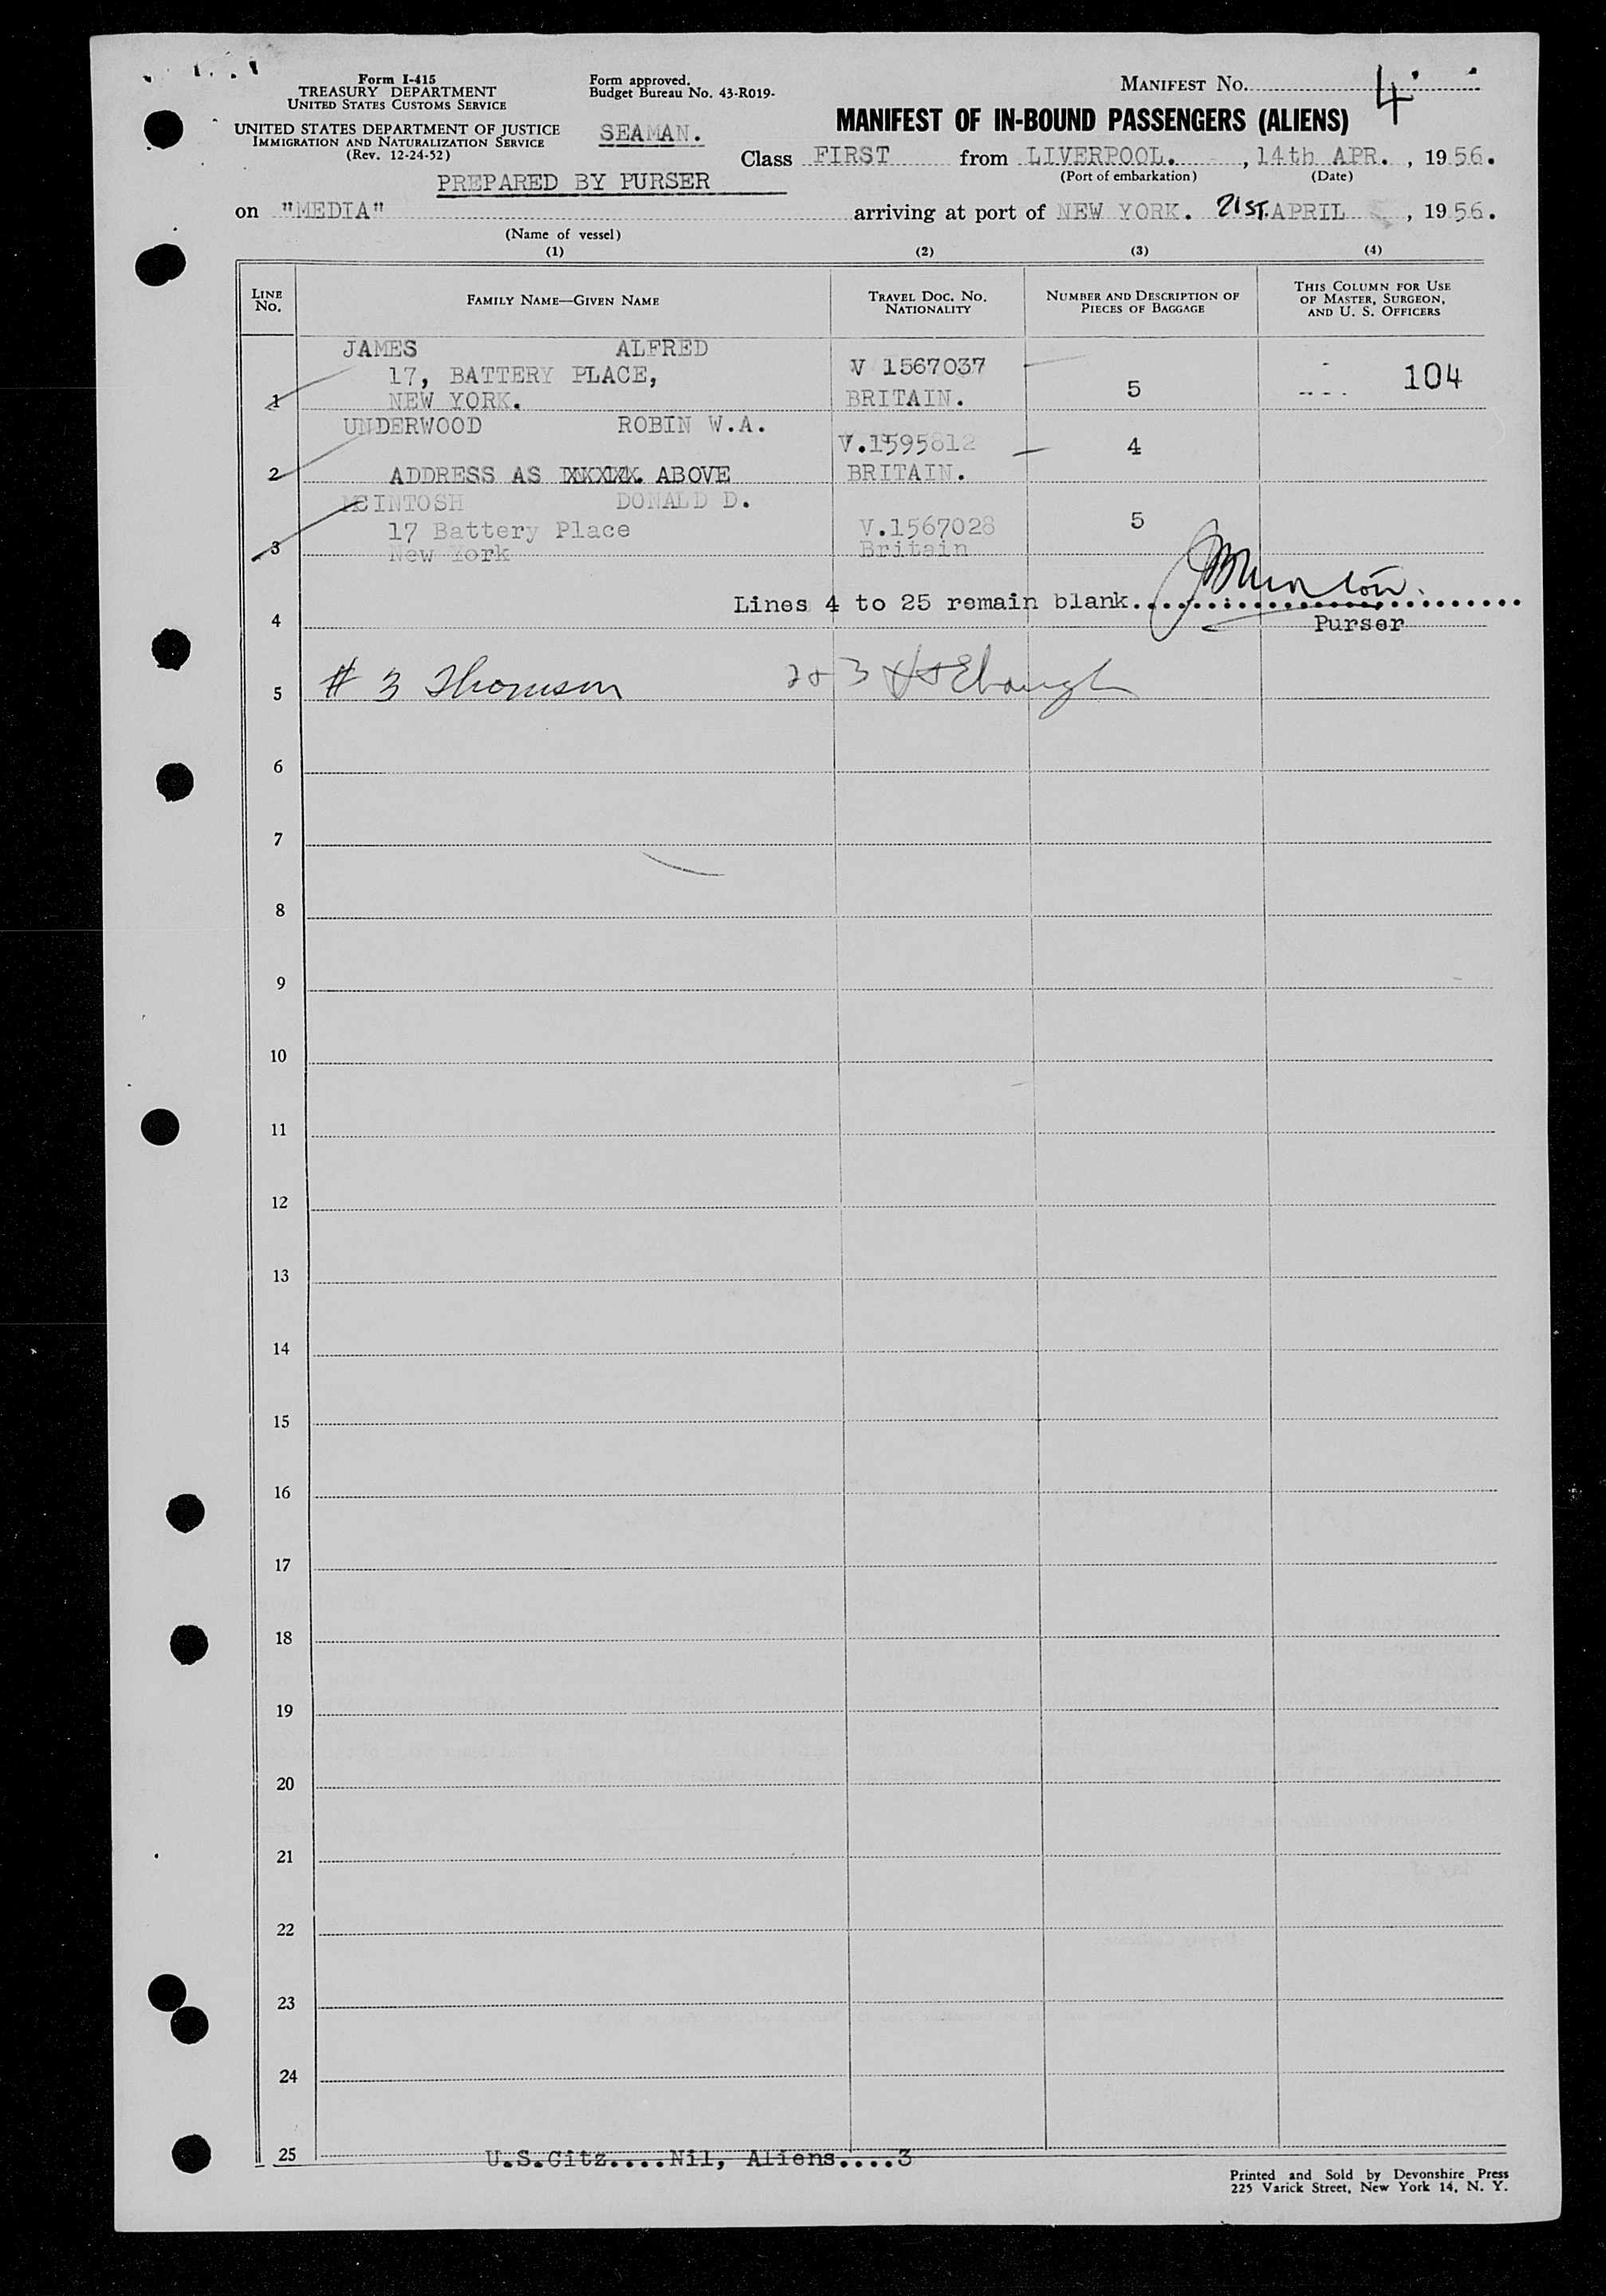 Form I-415
TREASURY DEPARTMENT
UNITED STATES CUSTOMS SERVICE
UNITED STATES DEPARTMENT OF JUSTICE
IMMIGRATION AND NATURALIZATION SERVICE
(Rev. 12-24-52)
Form approved.
Budget Bureau No. 43-R019-
SEAMAN.
PREPARED BY PURSER
MANIFEST No. 4
MANIFEST OF IN-BOUND PASSENGERS (ALIENS)
Class FIRST from LIVERPOOL. , 14th APR. , 1956.
(Port of embarkation) (Date)
on "MEDIA" arriving at port of NEW YORK. 21ST. APRIL , 1956.
(Name of vessel)
(1) (2) (3) (4)
LINE No. FAMILY NAME—GIVEN NAME TRAVEL DOC. NO. NATIONALITY NUMBER AND DESCRIPTION OF PIECES OF BAGGAGE THIS COLUMN FOR USE OF MASTER, SURGEON, AND U. S. OFFICERS
JAMES ALFRED
17, BATTERY PLACE, V 1567037 5 104
1 NEW YORK. BRITAIN.
UNDERWOOD ROBIN W.A.
V.1595812 4
2 ADDRESS AS ABOVE BRITAIN.
MCINTOSH DONALD D.
17 Battery Place V.1567028 5
3 New York Britain
Lines 4 to 25 remain blank.
4 Purser
5 # 3 Thomson 2 + 3
6
7
8
9
10
11
12
13
14
15
16
17
18
19
20
21
22
23
24
25 U.S.Citz....Nil, Aliens....3
Printed and Sold by Devonshire Press
225 Varick Street, New York 14, N. Y.